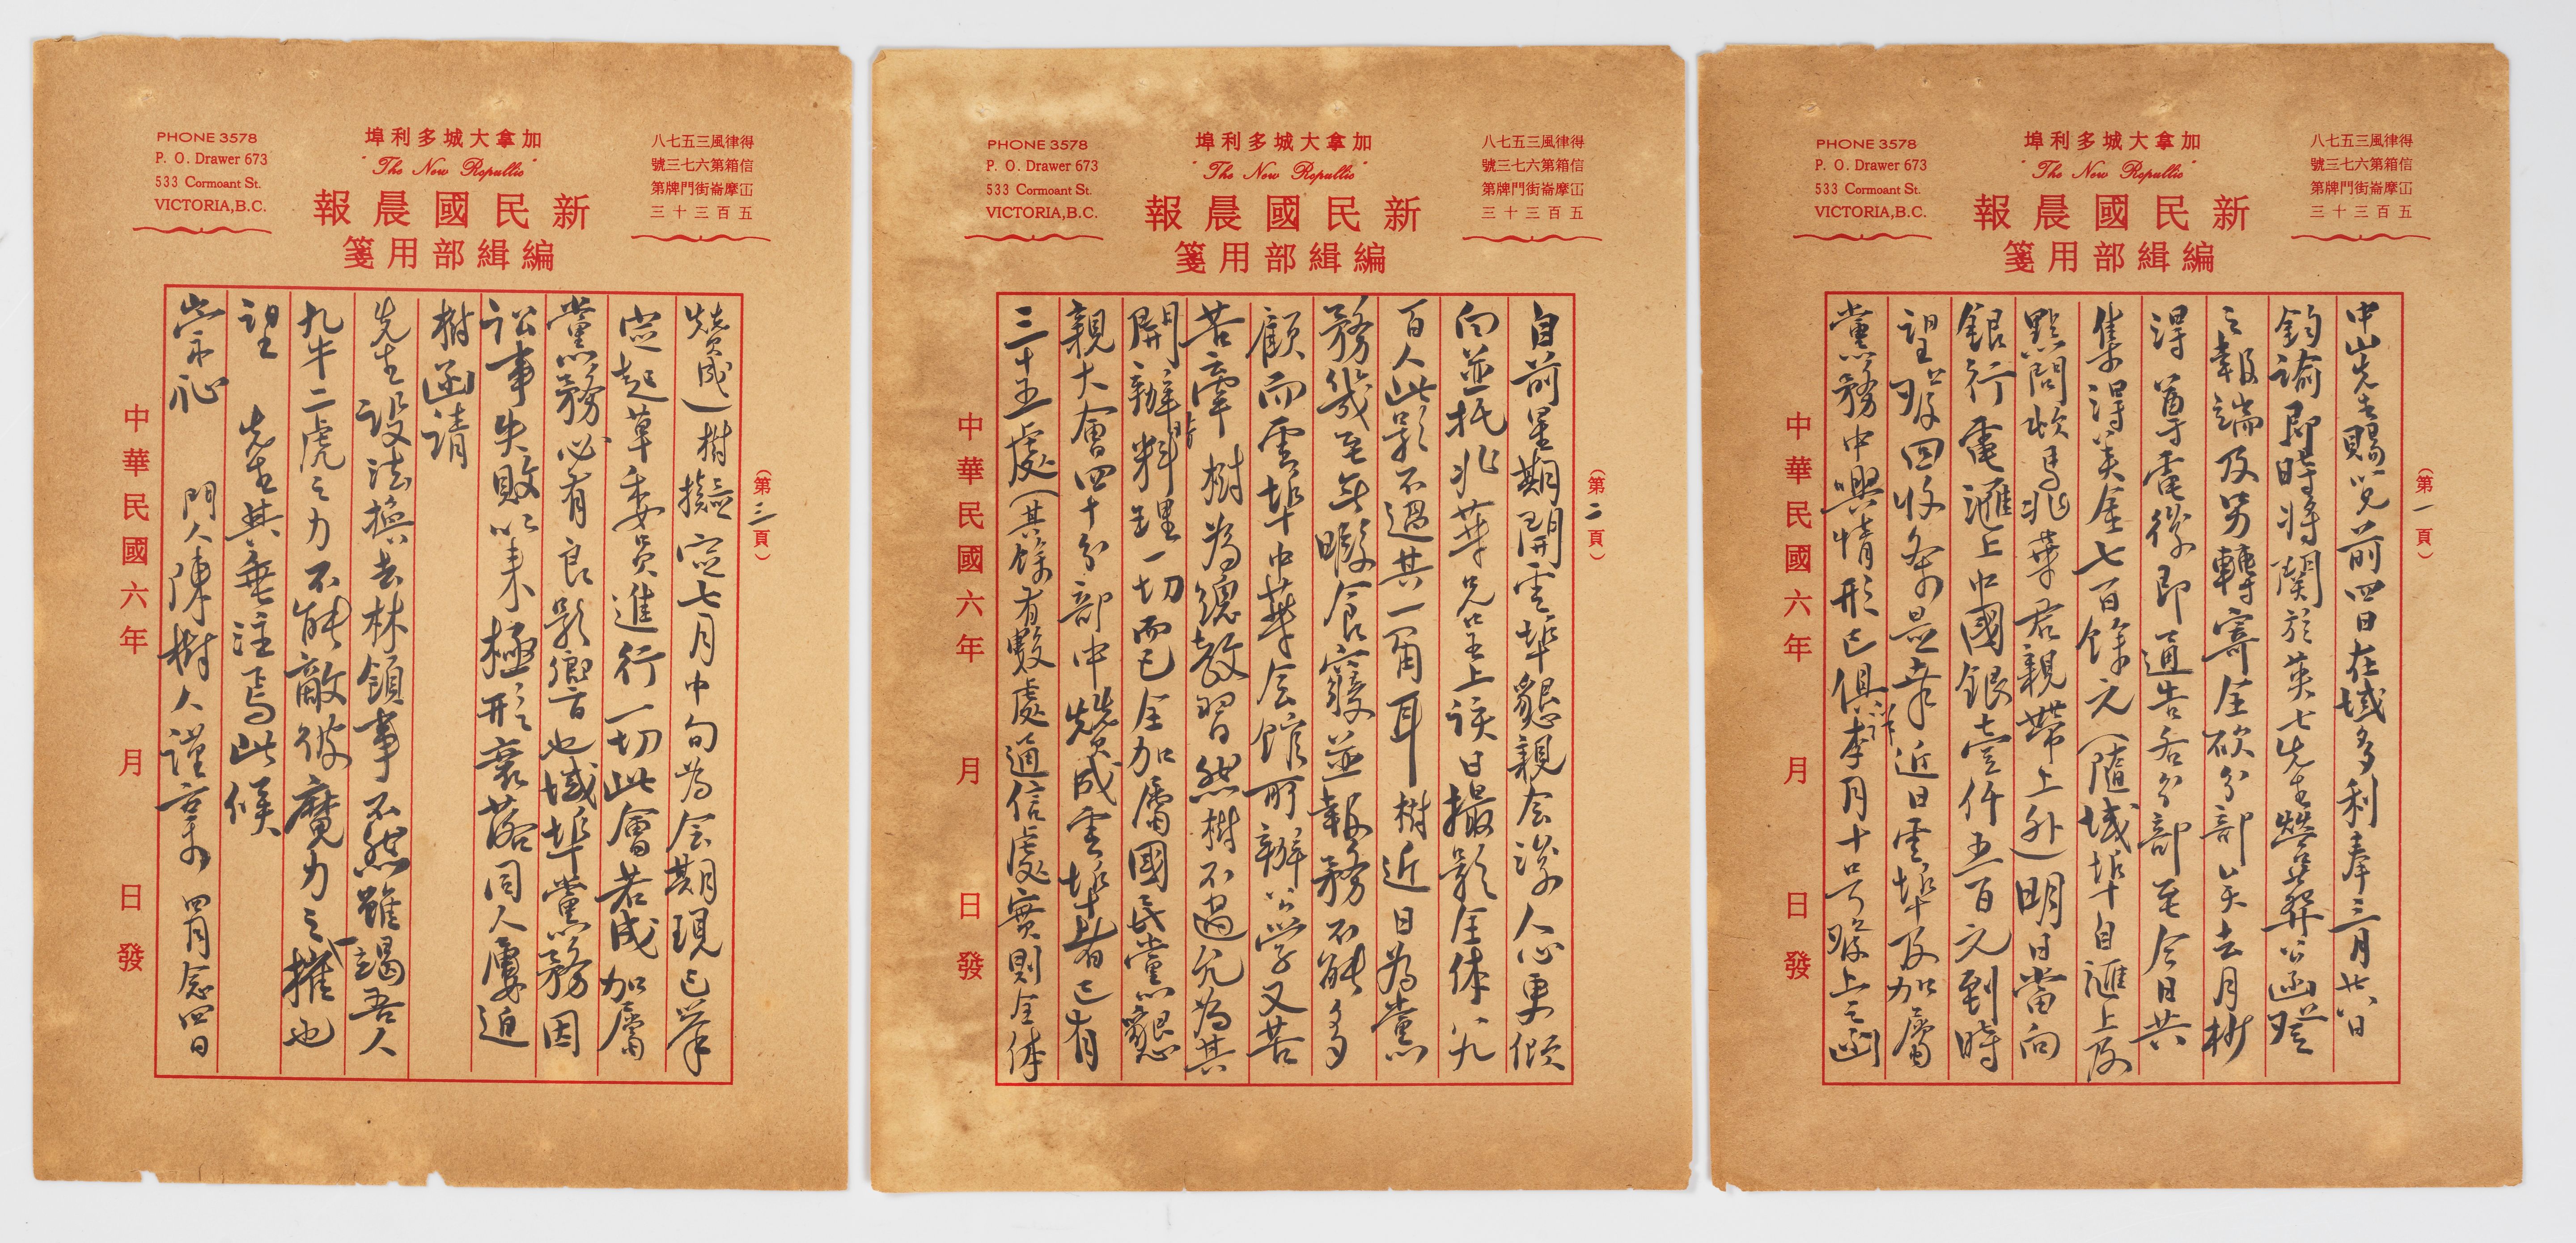 得律風三五七八
信箱第六七三號
冚摩崙街門牌第
五百三十三
加拿大城多利埠
"The New Republic"
新民國晨報
編緝部用箋
PHONE 3578
P. O. Drawer 673
533 Cormoant St.
VICTORIA,B.C.
(第一頁)
中山先生賜覽前四日在域多利奉三月廿八日
鈞諭即時將關於英七先生營葬公函登
之報端及另轉寄全砍分部矣去月樹
得 尊電後即通告各分部至今日共
集得美金七百餘元(隨域埠自滙上及
點問頓馬兆華君親帶上外)明日當向
銀行電滙上中國銀壹仟五百元到時
望賜回收條是幸近日雲埠及加屬
黨務中興情形已俱詳李月十号賜上之函
中華民國六年 月 日發
得律風三五七八
信箱第六七三號
冚摩崙街門牌第
五百三十三
加拿大城多利埠
"The New Republic"
新民國晨報
編緝部用箋
PHONE 3578
P. O. Drawer 673
533 Cormoant St.
VICTORIA,B.C.
(第二頁)
自前星期開雲埠懇親会後人心更傾
向並托兆華兄呈上該日撮影全体六
百人此影不過其一角耳樹近日為黨
務幾至無暇食寢並報務不能多
顧而雲埠中華会館所辦公学又苦
苦牽樹為總教習然樹不過允為其
開辦時料理一切而已全加屬國民黨懇
親大會四十分部中贊成雲埠者已有
三十五處(其餘有數處通信處實則全体
中華民國六年 月 日發
得律風三五七八
信箱第六七三號
冚摩崙街門牌第
五百三十三
加拿大城多利埠
"The New Republic"
新民國晨報
編緝部用箋
PHONE 3578
P. O. Drawer 673
533 Cormoant St.
VICTORIA,B.C.
(第三頁)
贊成)樹擬定七月中旬為会期現已举
定起草委員進行一切此會若成加屬
黨務必有良影響也域埠黨務因
訟事失敗以来極形衰落同人屢迫
樹函請
先生設法換去林領事不然雖竭吾人
九牛二虎之力不能敵彼魔力之一摧也
望 先生其垂注焉此候
崇祉 門人陳樹人謹言 四月念四日
中華民國六年 月 日發